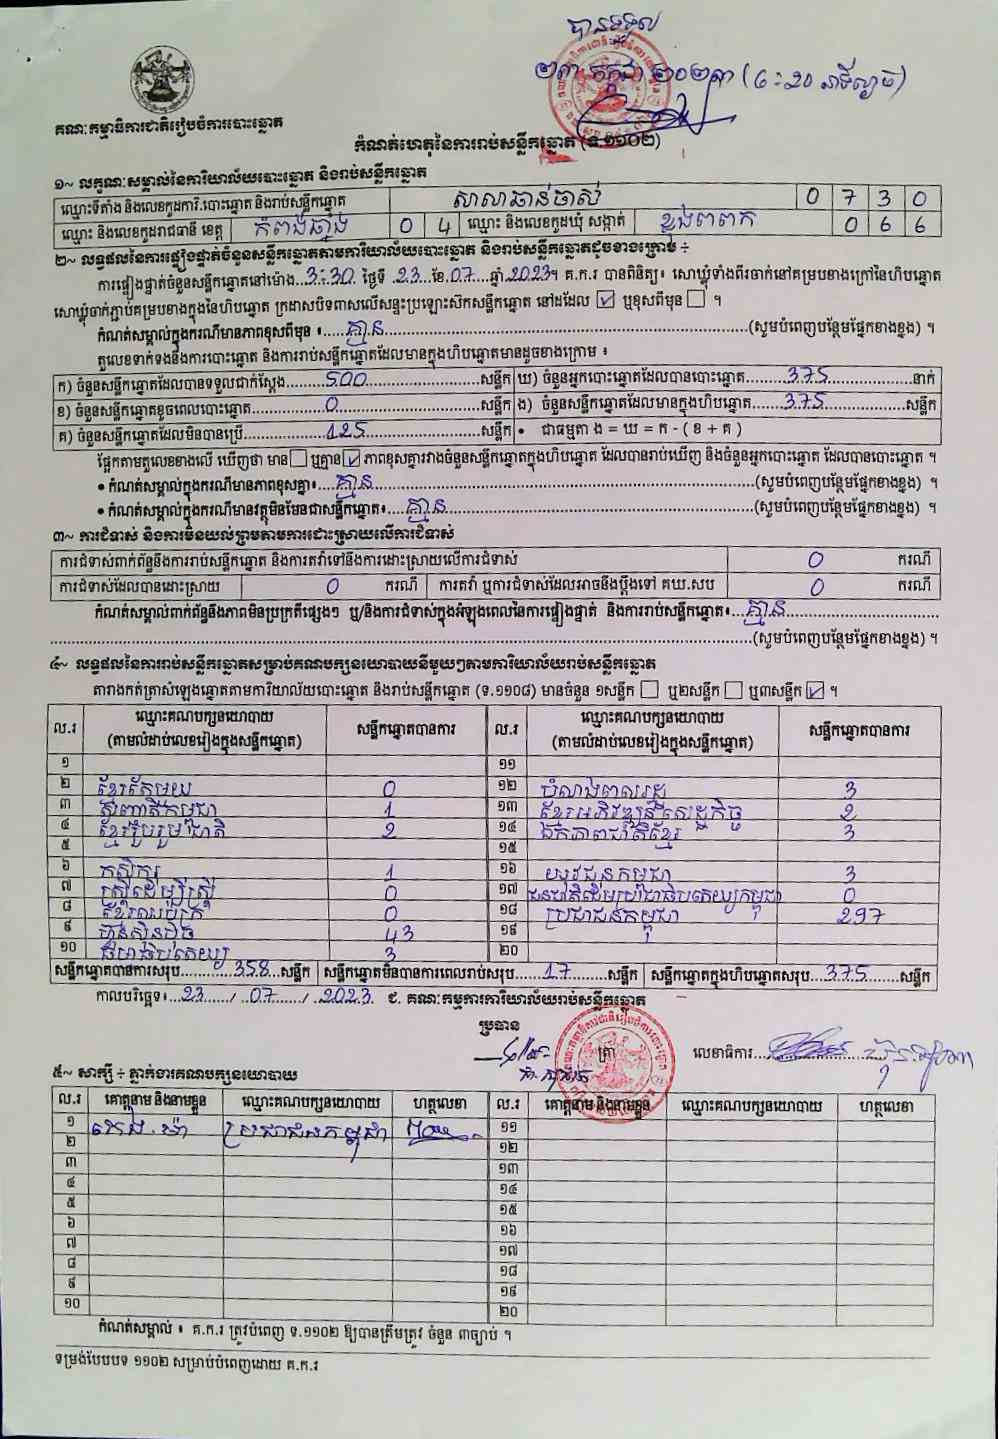 បានទទួល
២៣ កក្កដា ២០២៣ (6:20 នាទីល្ងាច)
គណៈកម្មាធិការជាតិរៀបចំការបោះឆ្នោត
កំណត់ហេតុនៃការរាប់សន្លឹកឆ្នោត (ទ.១១០២)
១~ លក្ខណៈសម្គាល់នៃការិយាល័យបោះឆ្នោត និងរាប់សន្លឹកឆ្នោត
ឈ្មោះទីតាំង និងលេខកូដការិ.បោះឆ្នោត និងរាប់សន្លឹកឆ្នោត សាលាឆាន់ចាស់ 0 7 3 0
ឈ្មោះ និងលេខកូដរាជធានី ខេត្ត កំពង់ឆ្នាំង 0 4 ឈ្មោះ និងលេខកូដឃុំ សង្កាត់ ខ្នងពពក 0 6 6
២~ លទ្ធផលនៃការផ្ទៀងផ្ទាត់ចំនួនសន្លឹកឆ្នោតតាមការិយាល័យបោះឆ្នោត និងរាប់សន្លឹកឆ្នោតដូចខាងក្រោម ÷
ការផ្ទៀងផ្ទាត់ចំនួនសន្លឹកឆ្នោតនៅម៉ោង 3:30 ថ្ងៃទី 23 ខែ 07 ឆ្នាំ 2023។ គ.ក.រ បានពិនិត្យ៖ សោឃ្លុំទាំងពីរចាក់នៅគម្របខាងក្រៅនៃហិបឆ្នោត
សោឃ្លុំចាក់ភ្ជាប់គម្របខាងក្នុងនៃហិបឆ្នោត ក្រដាសបិទពាសលើសន្ទះប្រឡោះស៊កសន្លឹកឆ្នោត នៅដដែល ☑ ឬខុសពីមុន ☐ ។
កំណត់សម្គាល់ក្នុងករណីមានភាពខុសពីមុន ៖ គ្មាន (សូមបំពេញបន្ថែមផ្នែកខាងខ្នង) ។
តួលេខទាក់ទងនឹងការបោះឆ្នោត និងការរាប់សន្លឹកឆ្នោតដែលមានក្នុងហិបឆ្នោតមានដូចខាងក្រោម ៖
ក) ចំនួនសន្លឹកឆ្នោតដែលបានទទួលជាក់ស្តែង 500 សន្លឹក ឃ) ចំនួនអ្នកបោះឆ្នោតដែលបានបោះឆ្នោត 375 នាក់
ខ) ចំនួនសន្លឹកឆ្នោតខូចពេលបោះឆ្នោត 0 សន្លឹក ង) ចំនួនសន្លឹកឆ្នោតដែលមានក្នុងហិបឆ្នោត 375 សន្លឹក
គ) ចំនួនសន្លឹកឆ្នោតដែលមិនបានប្រើ 125 សន្លឹក • ជាធម្មតា ង = ឃ = ក - ( ខ + គ )
ផ្អែកតាមតួលេខខាងលើ ឃើញថា មាន ☐ ឬគ្មាន ☑ ភាពខុសគ្នារវាងចំនួនសន្លឹកឆ្នោតក្នុងហិបឆ្នោត ដែលបានរាប់ឃើញ និងចំនួនអ្នកបោះឆ្នោត ដែលបានបោះឆ្នោត ។
• កំណត់សម្គាល់ក្នុងករណីមានភាពខុសគ្នា៖ គ្មាន (សូមបំពេញបន្ថែមផ្នែកខាងខ្នង) ។
• កំណត់សម្គាល់ក្នុងករណីមានវត្ថុមិនមែនជាសន្លឹកឆ្នោត៖ គ្មាន (សូមបំពេញបន្ថែមផ្នែកខាងខ្នង) ។
៣~ ការជំទាស់ និងការមិនយល់ព្រមតាមការដោះស្រាយលើការជំទាស់
ការជំទាស់ពាក់ព័ន្ធនឹងការរាប់សន្លឹកឆ្នោត និងការតវ៉ាទៅនឹងការដោះស្រាយលើការជំទាស់ 0 ករណី
ការជំទាស់ដែលបានដោះស្រាយ 0 ករណី ការតវ៉ា ឬការជំទាស់ដែលអាចនឹងប្តឹងទៅ គឃ.សប 0 ករណី
កំណត់សម្គាល់ពាក់ព័ន្ធនឹងភាពមិនប្រក្រតីផ្សេងៗ ឬ/និងការជំទាស់ក្នុងអំឡុងពេលនៃការផ្ទៀងផ្ទាត់ និងការរាប់សន្លឹកឆ្នោត៖ គ្មាន
(សូមបំពេញបន្ថែមផ្នែកខាងខ្នង) ។
៤~ លទ្ធផលនៃការរាប់សន្លឹកឆ្នោតសម្រាប់គណបក្សនយោបាយនីមួយៗតាមការិយាល័យរាប់សន្លឹកឆ្នោត
តារាងកត់ត្រាសំឡេងឆ្នោតតាមការិយាល័យបោះឆ្នោត និងរាប់សន្លឹកឆ្នោត (ទ.១១០៨) មានចំនួន ១សន្លឹក ☐ ឬ២សន្លឹក ☐ ឬ៣សន្លឹក ☑ ។
ល.រ ឈ្មោះគណបក្សនយោបាយ (តាមលំដាប់លេខរៀងក្នុងសន្លឹកឆ្នោត) សន្លឹកឆ្នោតបានការ ល.រ ឈ្មោះគណបក្សនយោបាយ (តាមលំដាប់លេខរៀងក្នុងសន្លឹកឆ្នោត) សន្លឹកឆ្នោតបានការ
១ ១១
២ ខ្មែរតែមួយ 0 ១២ បំលាស់ពលរដ្ឋ 3
៣ សញ្ជាតិកម្ពុជា 1 ១៣ ខ្មែរអភិវឌ្ឍន៍សេដ្ឋកិច្ច 2
៤ ខ្មែររួបរួមជាតិ 2 ១៤ ឯកភាពជាតិខ្មែរ 3
៥ ១៥
៦ កសិករ 1 ១៦ យុវជនកម្ពុជា 3
៧ ស្ត្រីដើម្បីស្ត្រី 0 ១៧ ជនជាតិដើមប្រជាធិបតេយ្យកម្ពុជា 0
៨ ខ្មែរឈប់ក្រ 0 ១៨ ប្រជាជនកម្ពុជា 297
៩ ហ្វ៊ុនស៊ិនប៉ិច 43 ១៩
១០ ធម្មាធិបតេយ្យ 3 ២០
សន្លឹកឆ្នោតបានការសរុប 358 សន្លឹក សន្លឹកឆ្នោតមិនបានការពេលរាប់សរុប 17 សន្លឹក សន្លឹកឆ្នោតក្នុងហិបឆ្នោតសរុប 375 សន្លឹក
កាលបរិច្ឆេទ៖ 23 / 07 / 2023 ជ. គណៈកម្មការការិយាល័យរាប់សន្លឹកឆ្នោត
ប្រធាន
ត្រា
លេខាធិការ
៥~ សាក្សី ÷ ភ្នាក់ងារគណបក្សនយោបាយ
ល.រ គោត្តនាម និងនាមខ្លួន ឈ្មោះគណបក្សនយោបាយ ហត្ថលេខា ល.រ គោត្តនាម និងនាមខ្លួន ឈ្មោះគណបក្សនយោបាយ ហត្ថលេខា
១ កេង ម៉ា ប្រជាជនកម្ពុជា ១១
២ ១២
៣ ១៣
៤ ១៤
៥ ១៥
៦ ១៦
៧ ១៧
៨ ១៨
៩ ១៩
១០ ២០
កំណត់សម្គាល់ ៖ គ.ក.រ ត្រូវបំពេញ ទ.១១០២ ឱ្យបានត្រឹមត្រូវ ចំនួន ៣ច្បាប់ ។
ទម្រង់បែបបទ ១១០២ សម្រាប់បំពេញដោយ គ.ក.រ